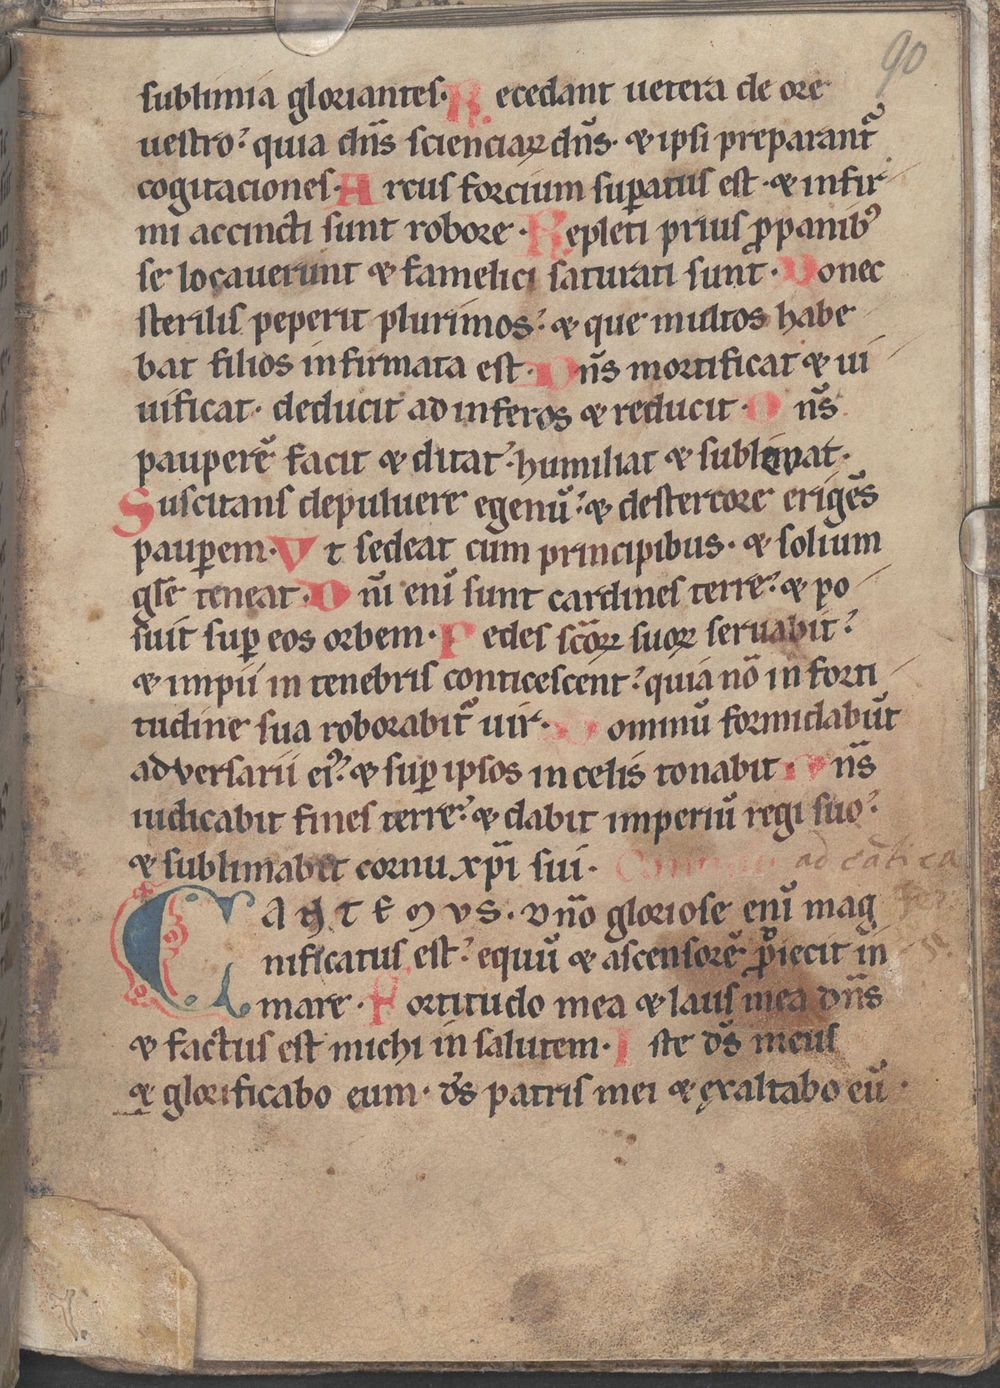 90
sublimia gloriantes. Recedant uetera de ore
uestro? quia dn̄s scienciaꝝ dn̄s. ⁊ ipsi preparant᷑
cogitaciones. Arcus forcium suꝑatus est. ⁊ infir
mi accincti sunt robore. Repleti prius ꝓ panibꝰ
se locauerunt ⁊ famelici saturati sunt. Donec
sterilis peperit plurimos? ⁊ que multos habe
bat filios infirmata est. Dn̄s mortificat ⁊ ui
uificat. deducit ad inferos ⁊ reducit. Dn̄s
pauperē facit ⁊ ditat. humiliat ⁊ sublimat.
Suscitans de puluere egenū? ⁊ de stercore erigēs
pauꝑem. Vt sedeat cum principibus. ⁊ solium
gl̄e teneat. Dn̄i eni̅ sunt cardines terre? ⁊ po
suit suꝑ eos orbem. Pedes sc̄oꝝ suoꝝ seruabit?
⁊ impii in tenebris conticescent? quia nō in forti
tudine sua roborabit᷑ uir. Dominū formidabūt
adversarii eiꝰ? ⁊ suꝑ ipsos in celis tonabit. Dn̄s
iudicabit fines terre? ⁊ dabit imperiū regi suo?
⁊ sublimabit cornu xp̄i sui. ad cātica
CANTEMVS. dn̄o gloriose eni̅ mag
nificatus est? equū ⁊ ascensorē ꝓiecit in
mare. Fortitudo mea ⁊ laus mea dn̄s
⁊ factus est michi in salutem. Iste ds̄ meus
⁊ glorificabo eum. ds̄ patris mei ⁊ exaltabo eū.